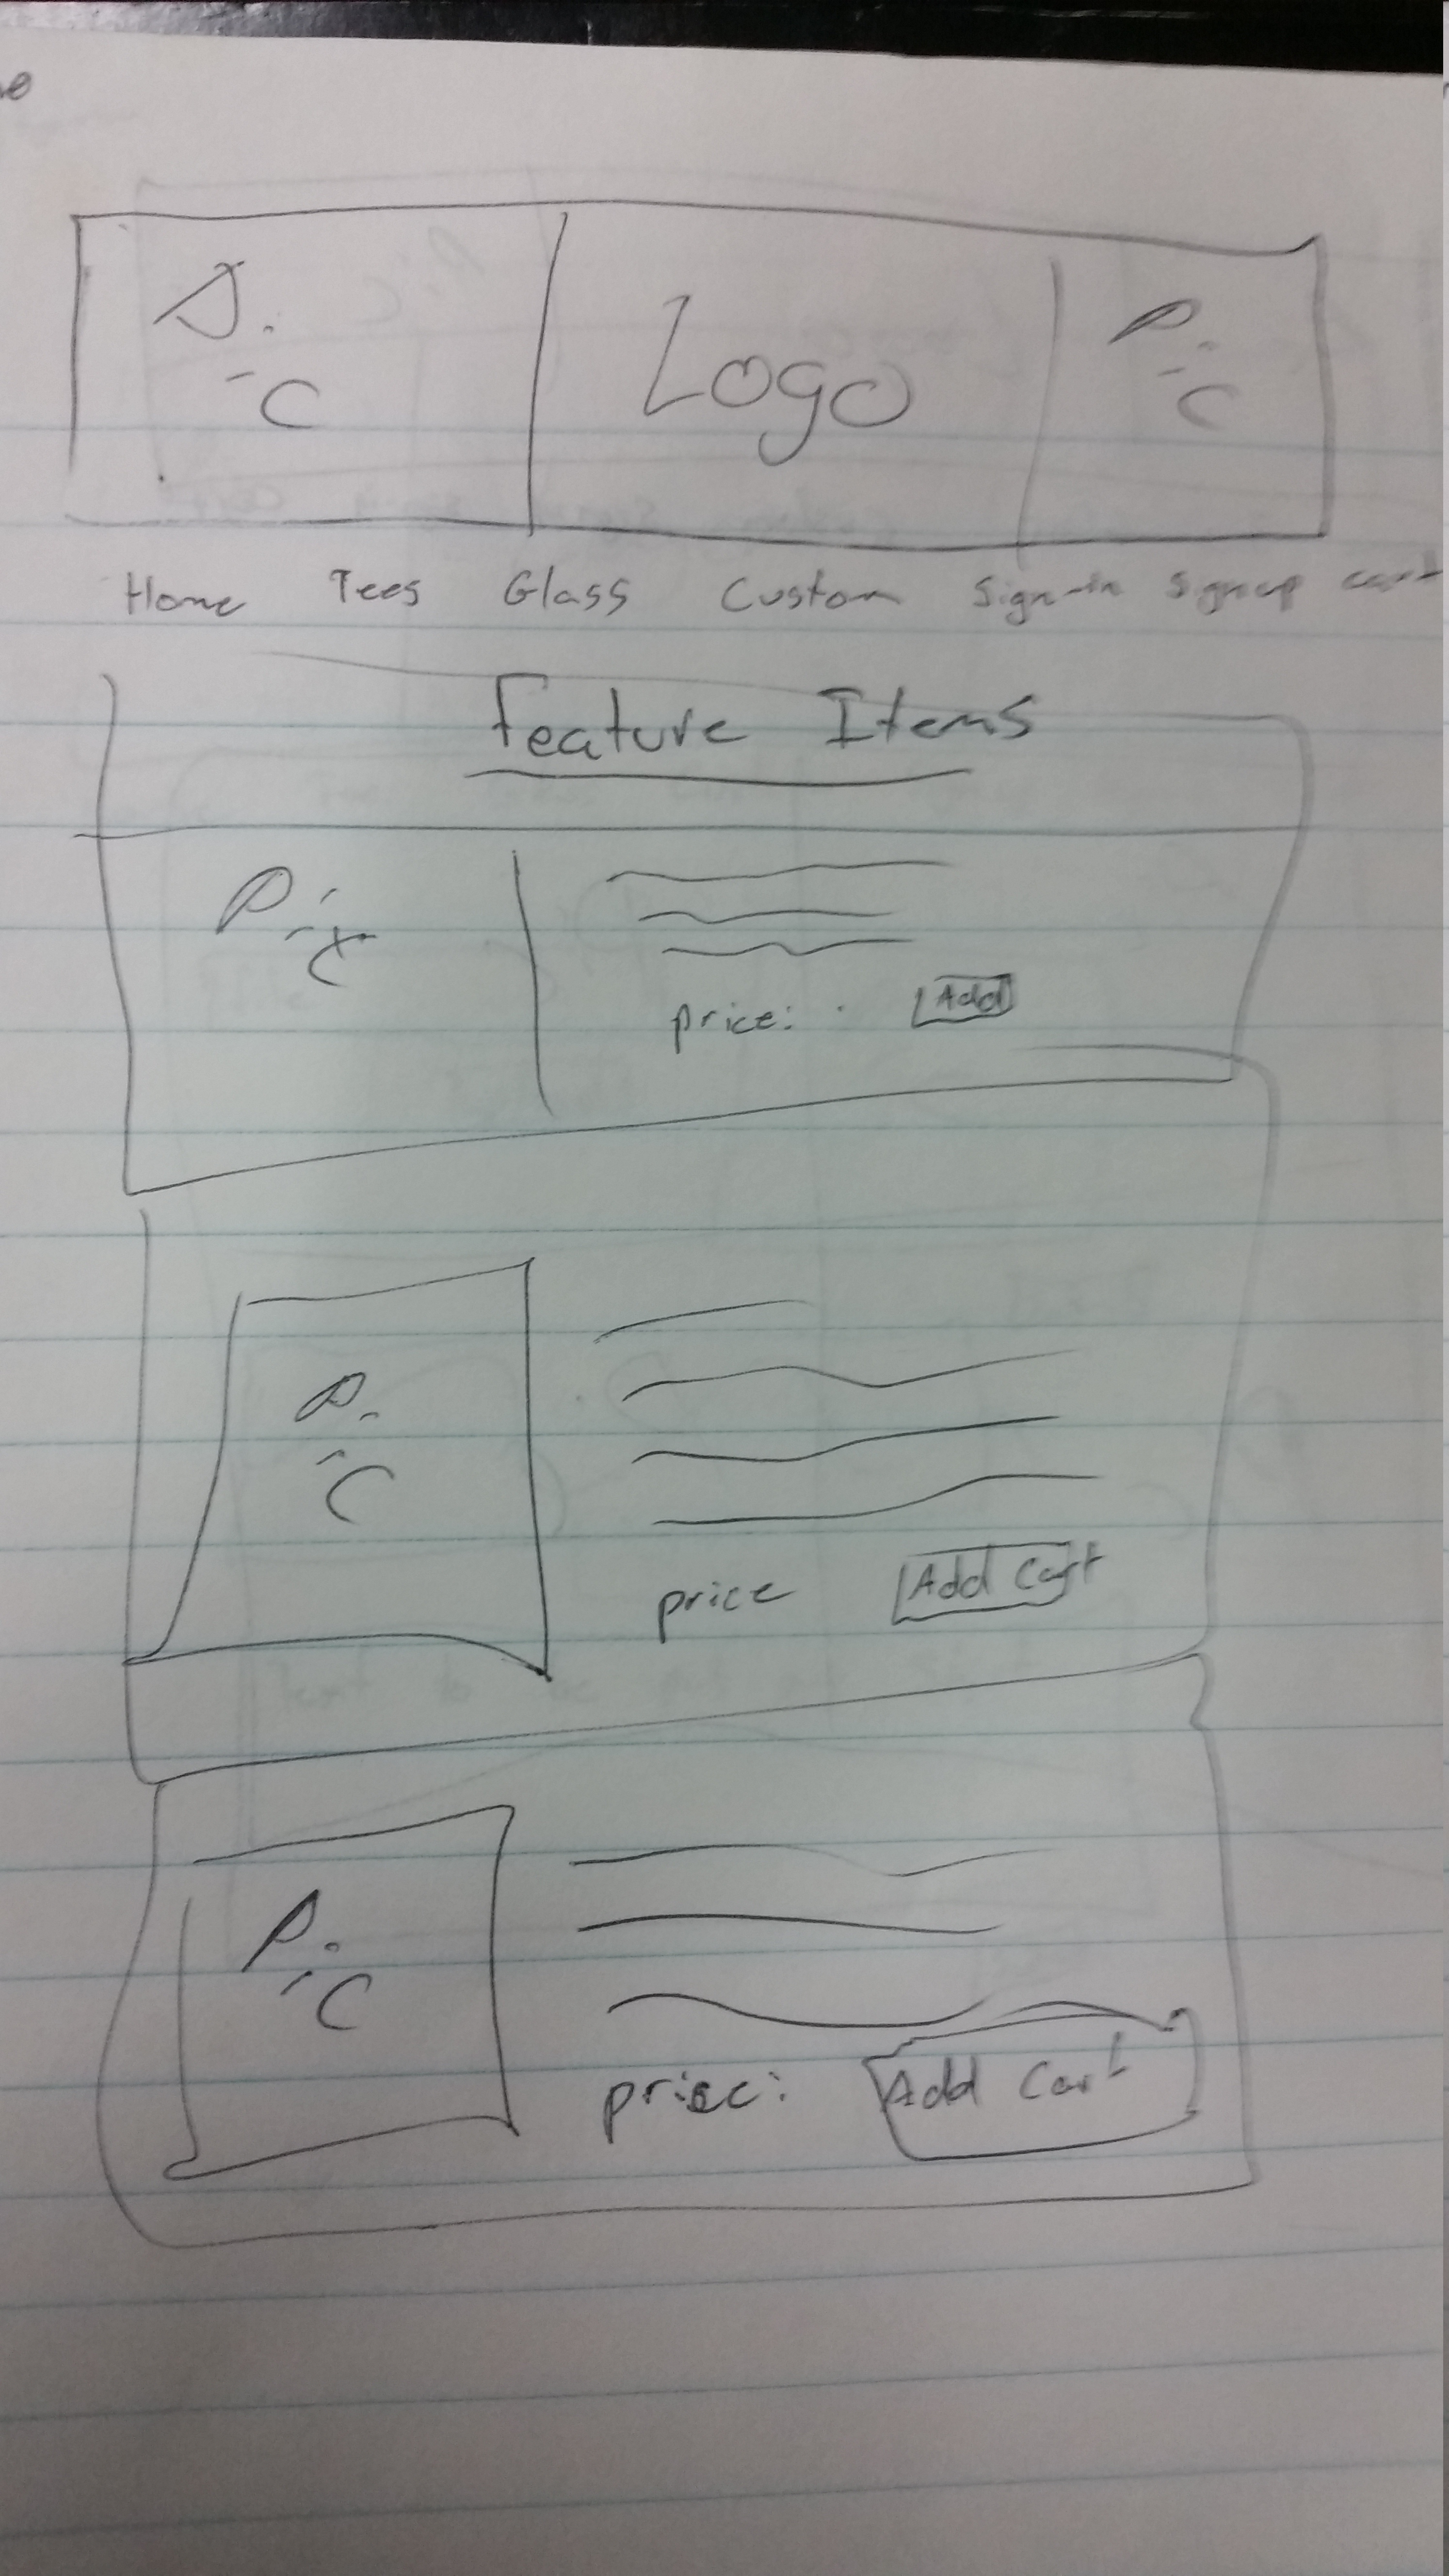 Pic Logo Pic
Home Tees Glass Custom Sign-in Signup cart
Feature Items
Pic
price: Add
Pic
price Add Cart
Pic
price: Add Cart